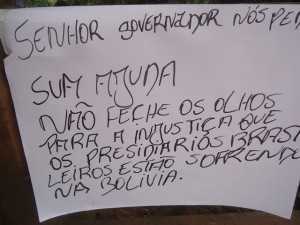 SENHOR GOVERNADOR NÓS PE
SUM AJUDA
NÃO FECHE OS OLHOS
PARA A INJUSTIÇA QUE
OS PRESIDIARIÓS BRASI
LEIROS ESTÃO SOFRENDO
NA BOLÍVIA.